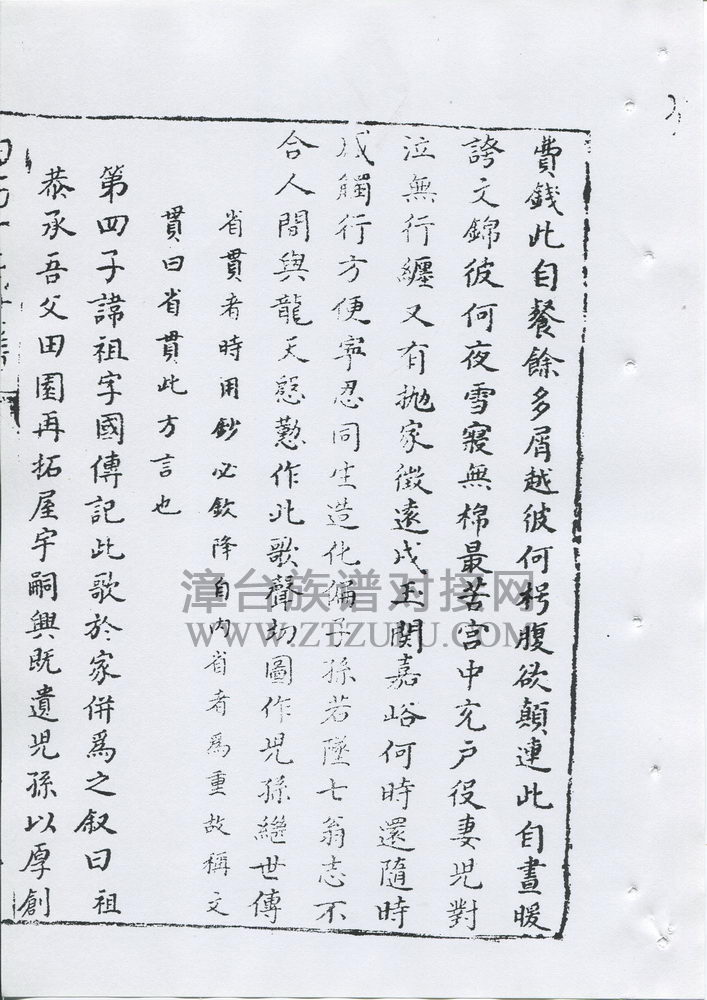 費錢此自餐餘多屑越彼何枵腹欲顛連此自晝暖
誇文錦彼何夜雪寢無棉最苦宮中充戶役妻児對
泣無行纏又有抛家徵遠戍玉関嘉峪何時還隨時
或觸行方便寧忍同生造化偏子孫若墜七翁志不
合人間與龍天慇懃作此歌聲圖作児孫繼世傳
省貫者時用鈔必欽降自内省者爲重故稱文
貫曰省貫此方言也
第四子諱祖字國傳記此歌於家併爲之叙曰祖
恭承吾父田園再拓屋宇嗣興既遺児孫以厚創
漳台族谱对接网
WWW.ZTZUPU.COM